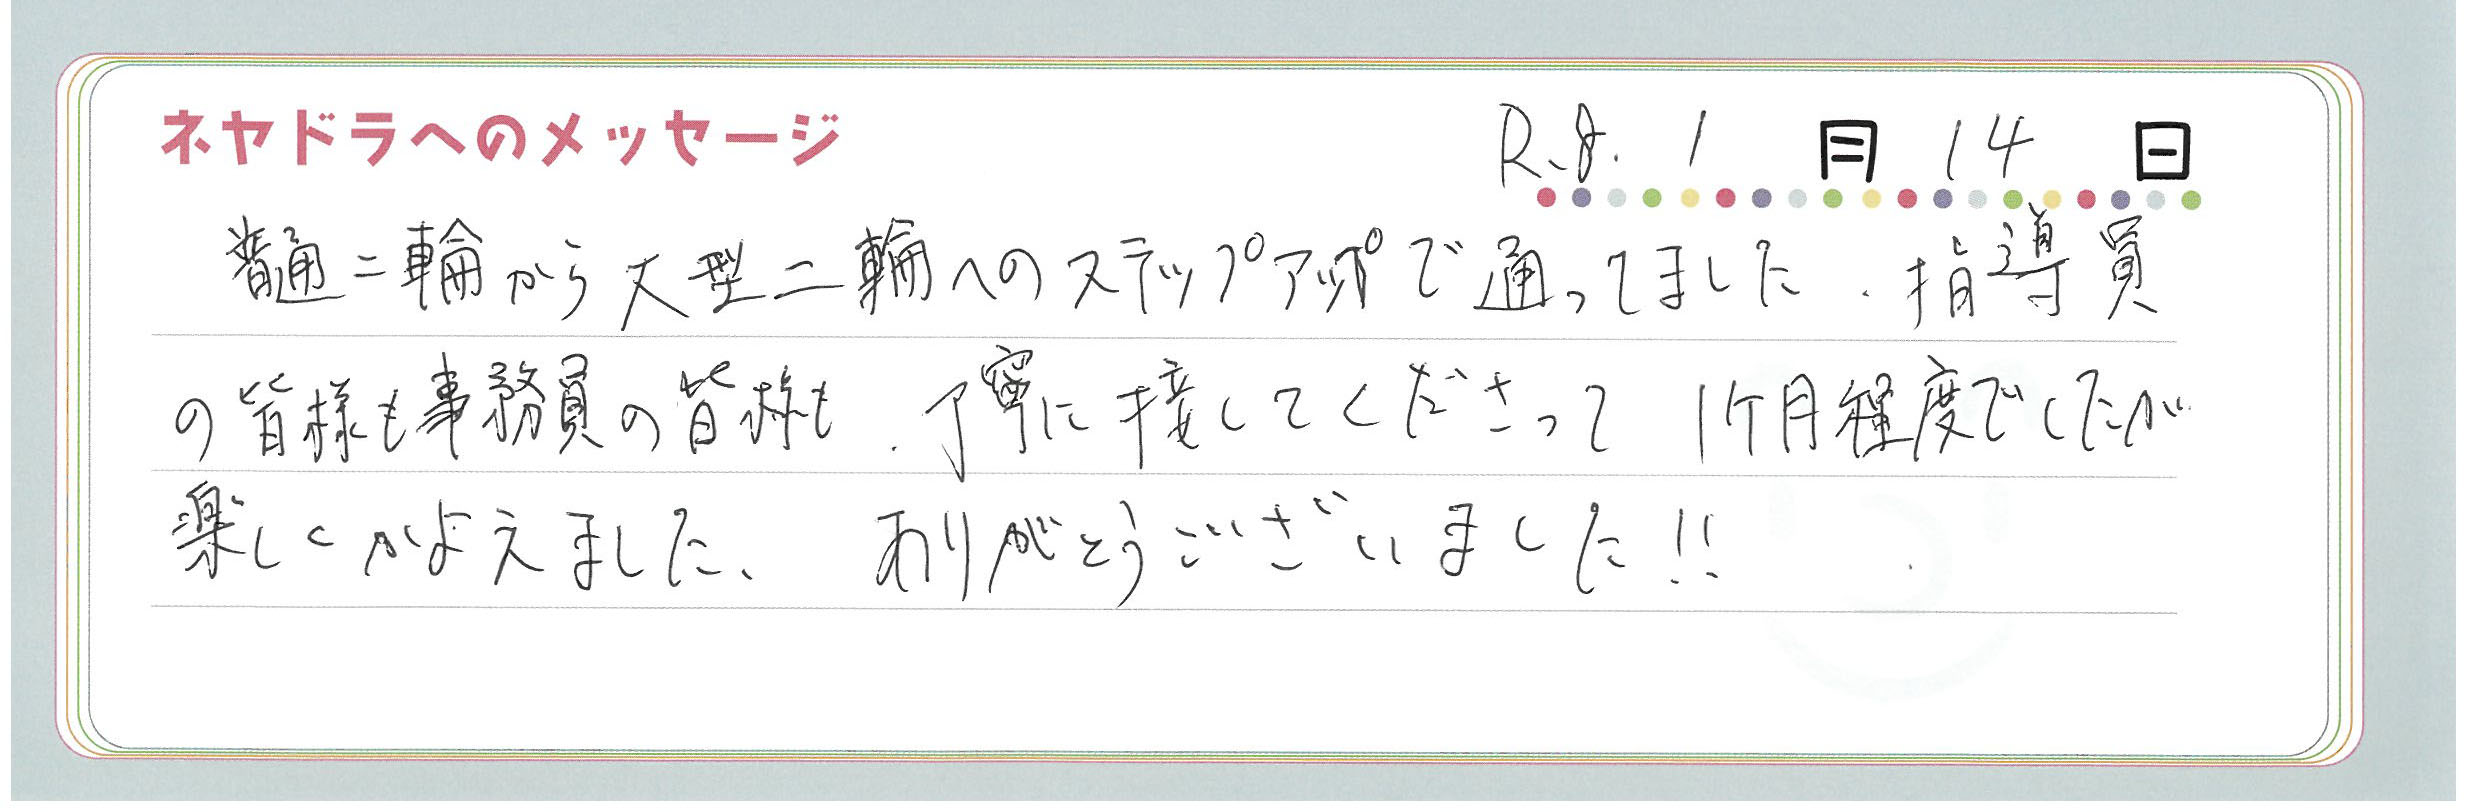 ネヤドラへのメッセージ
R.8. 1 月 14 日
普通二輪から大型二輪へのステップアップで通ってました。指導員
の皆様も事務員の皆様も、丁寧に接してくださって 1ケ月程度でしたが
楽しくかよえました、 ありがとうございました!!